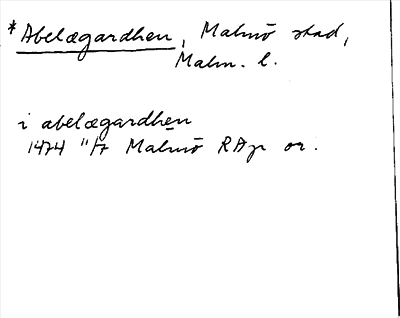 *Abelægardhen, Malmö stad,
Malm. l.
i abelægardhen
1474 11/7 Malmö RAp or.